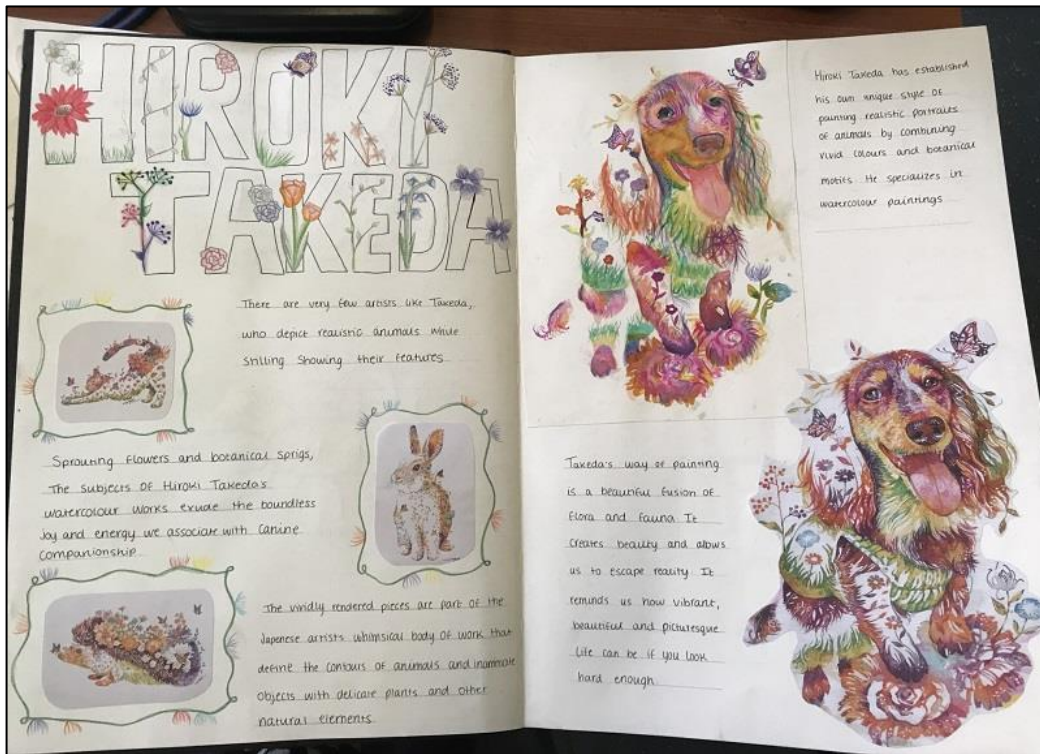 HIROKI
TAKEDA
There are very few artists like Takeda,
who depict realistic animals while
stilling showing their features
Sprouting flowers and botanical sprigs,
The subjects of Hiroki Takeda's
watercolour works exude the boundless
Joy and energy we associate with canine
companionship.
The vividly rendered pieces are part of the
Japanese artists whimsical body of work that
define the contours of animals and inanimate
objects with delicate plants and other
natural elements
Hiroki Takeda has established
his own unique style of
painting realistic portraits
of animals by combining
vivid colours and botanical
motifs. He specializes in
watercolour paintings
Takeda's way of painting
is a beautiful fusion of
flora and fauna It
creates beauty and allows
us to escape reality It
reminds us how vibrant,
beautiful and picturesque
life can be if you look
hard enough